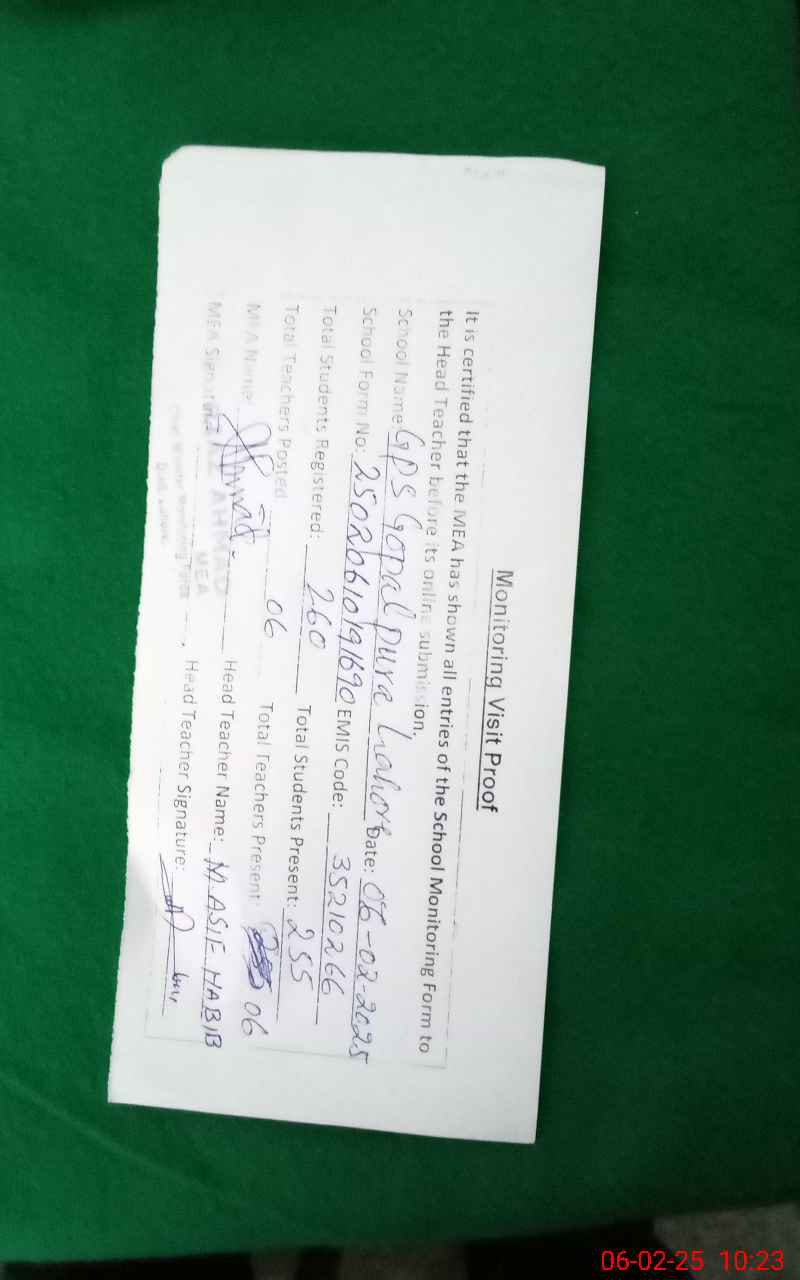 Monitoring Visit Proof
It is certified that the MEA has shown all entries of the School Monitoring Form to
the Head Teacher before its online submission.
School Name: GPS Gopal pura Lahore Date: 06-02-2025
School Form No: 25020610191690 EMIS Code: 35210266
Total Students Registered: 260 Total Students Present: 255
Total Teachers Posted 06 Total Teachers Present: 06
MEA Name: Head Teacher Name: M. ASIF HABIB
MEA Signature Head Teacher Signature:
AHMAD
MEA
06-02-25 10:23